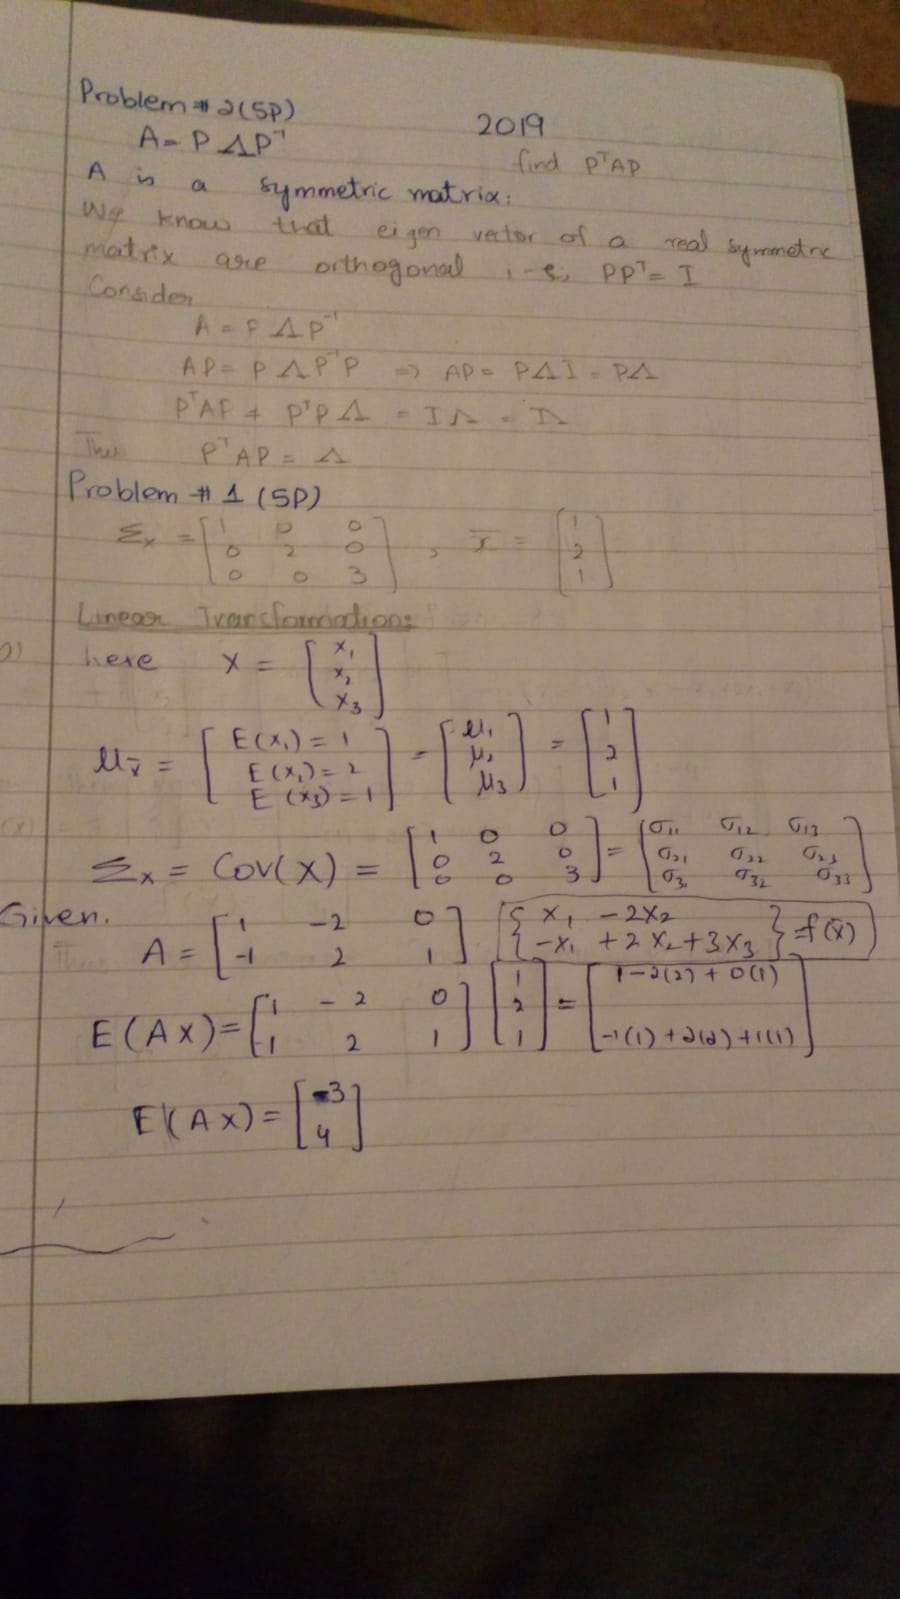 Problem # 2(5P)
2019
A = P Λ P⁻¹
find PᵀAP
A is a symmetric matrix:
We know that eigen vector of a real symmetric
matrix are orthogonal i-e; PPᵀ= I
Consider
A = P Λ P⁻¹
AP = P Λ P⁻¹P ⇒ AP = PΛI = PΛ
PᵀAP + PᵀPΛ = IΛ = Λ
Thus PᵀAP = Λ
Problem # 1 (5P)
Σx = [1 0 0
0 2 0
0 0 3] , x̄ = [1
2
1]
Linear Transformation:
here X = [x₁
x₂
x₃]
μx̄ = [E(x₁) = 1
E(x₁) = 2
E(x₃) = 1] = [μ₁
μ₂
μ₃] = [1
2
1]
Σx = Cov(X) = [1 0 0
0 2 0
0 0 3] = [σ₁₁ σ₁₂ σ₁₃
σ₂₁ σ₂₂ σ₂₃
σ₃₁ σ₃₂ σ₃₃]
Given.
A = [1 -2 0
-1 2 1] {x₁ - 2x₂
-x₁ + 2x₂ + 3x₃} = f(x̄)
E(AX) = [1 -2 0
-1 2 1] [1
2
1] = [1-2(2) + 0(1)
-1(1) +2(2) +1(1)]
E(AX) = [-3
4]